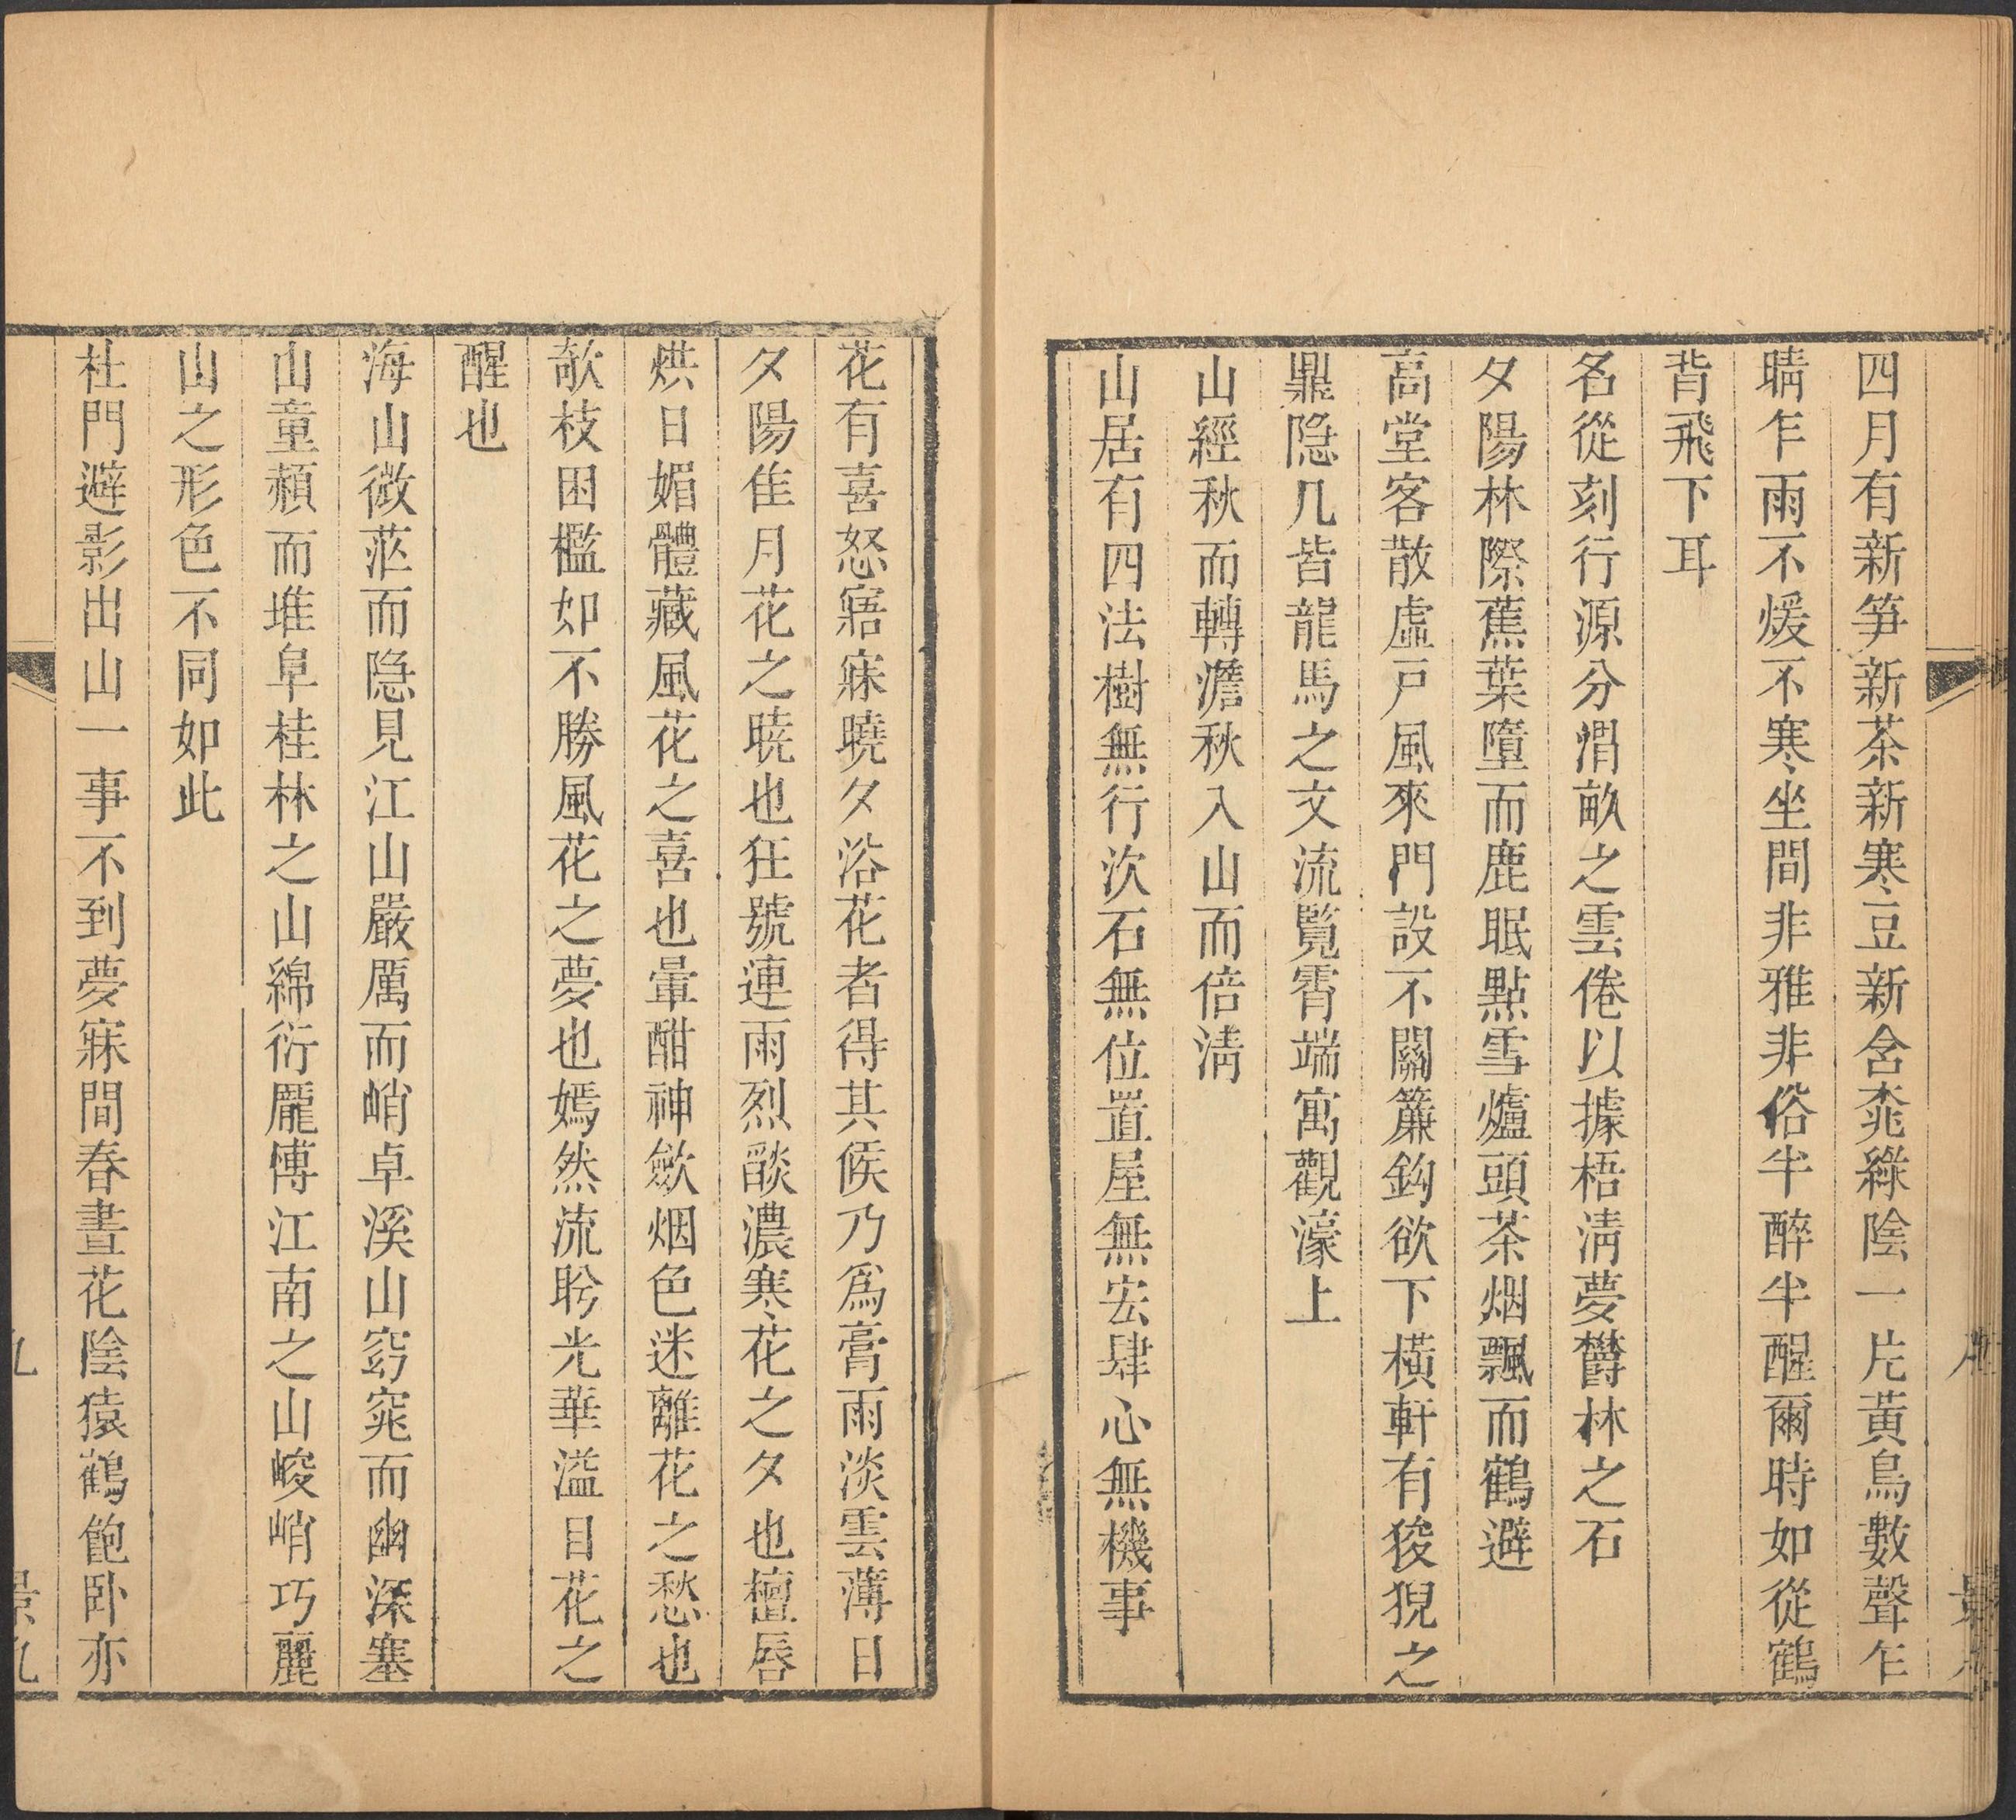 四月有新笋新茶新寒豆新含桃綠陰一片黃鳥數聲乍
晴乍雨不煖不寒坐間非雅非俗半醉半醒爾時如從鶴
背飛下耳
名從刻行源分渭畝之雲倦以據梧清夢欝林之石
夕陽林際蕉葉墮而鹿眠點雪爐頭茶烟飄而鶴避
高堂客散虛戸風來門設不關簾鈎欲下橫軒有狻猊之
鼎隐几皆龍馬之文流覧霄端寓觀濠上
山經秋而轉澹秋入山而倍清
山居有四法樹無行次石無位置屋無宏肆心無機事
花有喜怒寤寐曉夕浴花者得其候乃爲膏雨淡雲薄日
夕陽隹月花之暁也狂號連雨烈燄濃寒花之夕也檀唇
烘日媚體藏風花之喜也暈酣神斂烟色迷離花之愁也
欹枝困檻如不勝風花之夢也嫣然流盻光華溢目花之
醒也
海山微茫而隐見江山嚴厲而峭卓溪山窈窕而幽深塞
山童赬而堆阜桂林之山綿衍龎博江南之山峻峭巧麗
山之形色不同如此
杜門避影出山一事不到夢寐間春晝花陰猿鶴飽卧亦
九
景九